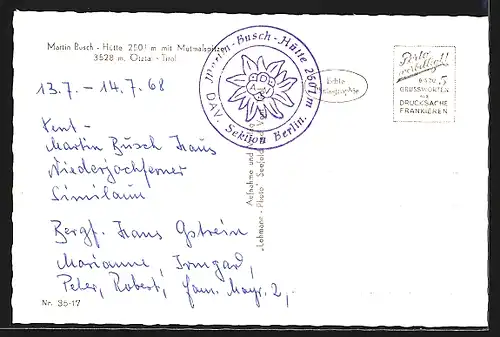 Martin Busch - Hütte 2501 m mit Mutmalspitzen
3528 m. Ötztal - Tirol
Martin-Busch-Hütte 2501 m
DAV. Sektion Berlin.
Echte
Photographie
Porto
verbilligt!
BIS ZU 5
GRUSSWORTEN
ALS
DRUCKSACHE
FRANKIEREN
13.7. - 14.7.68
Vent -
Martin Busch Haus
Niederjochferner
Similaun
Bergf. Hans Gstrein
Marianne, Irmgard,
Peter, Robert, Fam. Mayr. 2,-
Aufnahme und
"Lehmann-Photo" Seefeld
Nr. 35-17